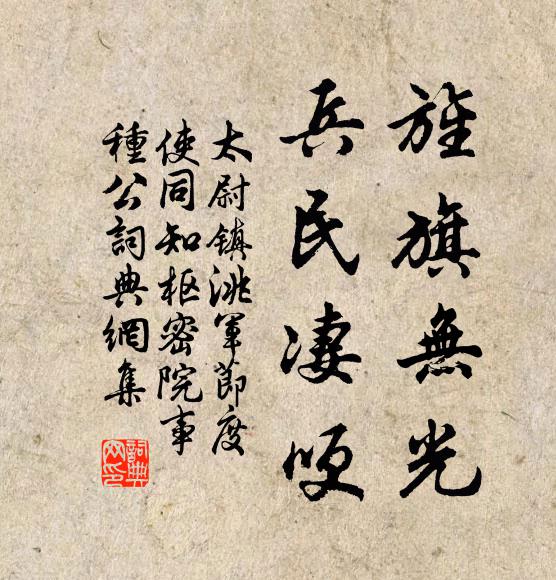 旌旗無光
兵民凄哽
太尉鎮洮軍節度
使同知枢密院事
種公詞典網集
詞典網印